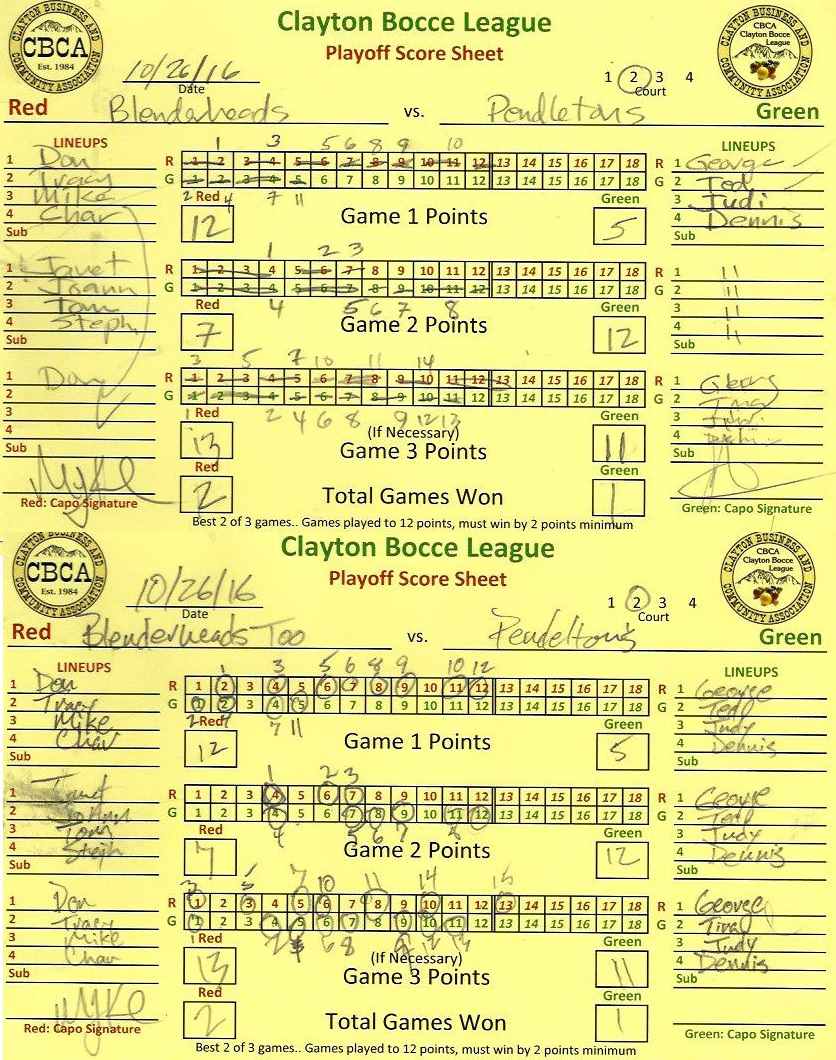 Clayton Bocce League
Playoff Score Sheet
CLAYTON BUSINESS AND COMMUNITY ASSOCIATION
CBCA
Est. 1984
CBCA
Clayton Bocce
League
10/26/16
Date
1 2 3 4
Court
Red Blenderheads vs. Pendletons Green
LINEUPS
LINEUPS
1 3 5 6 8 9 10
1 Don R 1 2 3 4 5 6 7 8 9 10 11 12 13 14 15 16 17 18 R 1 George
2 Tracy G 1 2 3 4 5 6 7 8 9 10 11 12 13 14 15 16 17 18 G 2 Ted
3 Mike 2 Red 4 7 11 Green 3 Judi
4 Char 12 Game 1 Points 5 4 Dennis
Sub
Sub
1 2 3
1 Janet R 1 2 3 4 5 6 7 8 9 10 11 12 13 14 15 16 17 18 R 1 11
2 Joann G 1 2 3 4 5 6 7 8 9 10 11 12 13 14 15 16 17 18 G 2 11
3 Tom Red 4 5 6 7 8 Green 3 11
4 Steph 7 Game 2 Points 12 4 11
Sub
Sub
3 5 7 10 11 14
1 Don R 1 2 3 4 5 6 7 8 9 10 11 12 13 14 15 16 17 18 R 1 Georg
2 G 1 2 3 4 5 6 7 8 9 10 11 12 13 14 15 16 17 18 G 2
3 1 Red 2 4 6 8 9 12 13 Green 3
4 13 (If Necessary) 11 4
Sub
Game 3 Points
Sub
Red Green
2 Total Games Won 1
Red: Capo Signature
Green: Capo Signature
Best 2 of 3 games.. Games played to 12 points, must win by 2 points minimum
Clayton Bocce League
Playoff Score Sheet
CLAYTON BUSINESS AND COMMUNITY ASSOCIATION
CBCA
Est. 1984
CBCA
Clayton Bocce
League
10/26/16
Date
1 2 3 4
Court
Red Blenderheads Too vs. Pendelton's Green
LINEUPS
LINEUPS
1 3 5 6 8 9 10 12
1 Don R 1 2 3 4 5 6 7 8 9 10 11 12 13 14 15 16 17 18 R 1 George
2 Tracy G 1 2 3 4 5 6 7 8 9 10 11 12 13 14 15 16 17 18 G 2 Ted
3 Mike 2 Red 4 7 11 Green 3 Judy
4 Char 12 Game 1 Points 5 4 Dennis
Sub
Sub
1 2 3
1 Janet R 1 2 3 4 5 6 7 8 9 10 11 12 13 14 15 16 17 18 R 1 George
2 G 1 2 3 4 5 6 7 8 9 10 11 12 13 14 15 16 17 18 G 2 Ted
3 Tom Red 4 5 6 7 8 Green 3 Judy
4 Steph 7 Game 2 Points 12 4 Dennis
Sub
Sub
3 5 7 10 11 14 15
1 Don R 1 2 3 4 5 6 7 8 9 10 11 12 13 14 15 16 17 18 R 1 George
2 Tracy G 1 2 3 4 5 6 7 8 9 10 11 12 13 14 15 16 17 18 G 2
3 Mike 1 Red 2 4 6 8 9 12 13 Green 3 Judy
4 Char 13 (If Necessary) 11 4 Dennis
Sub
Game 3 Points
Sub
Red Green
2 Total Games Won 1
Red: Capo Signature
Green: Capo Signature
Best 2 of 3 games.. Games played to 12 points, must win by 2 points minimum